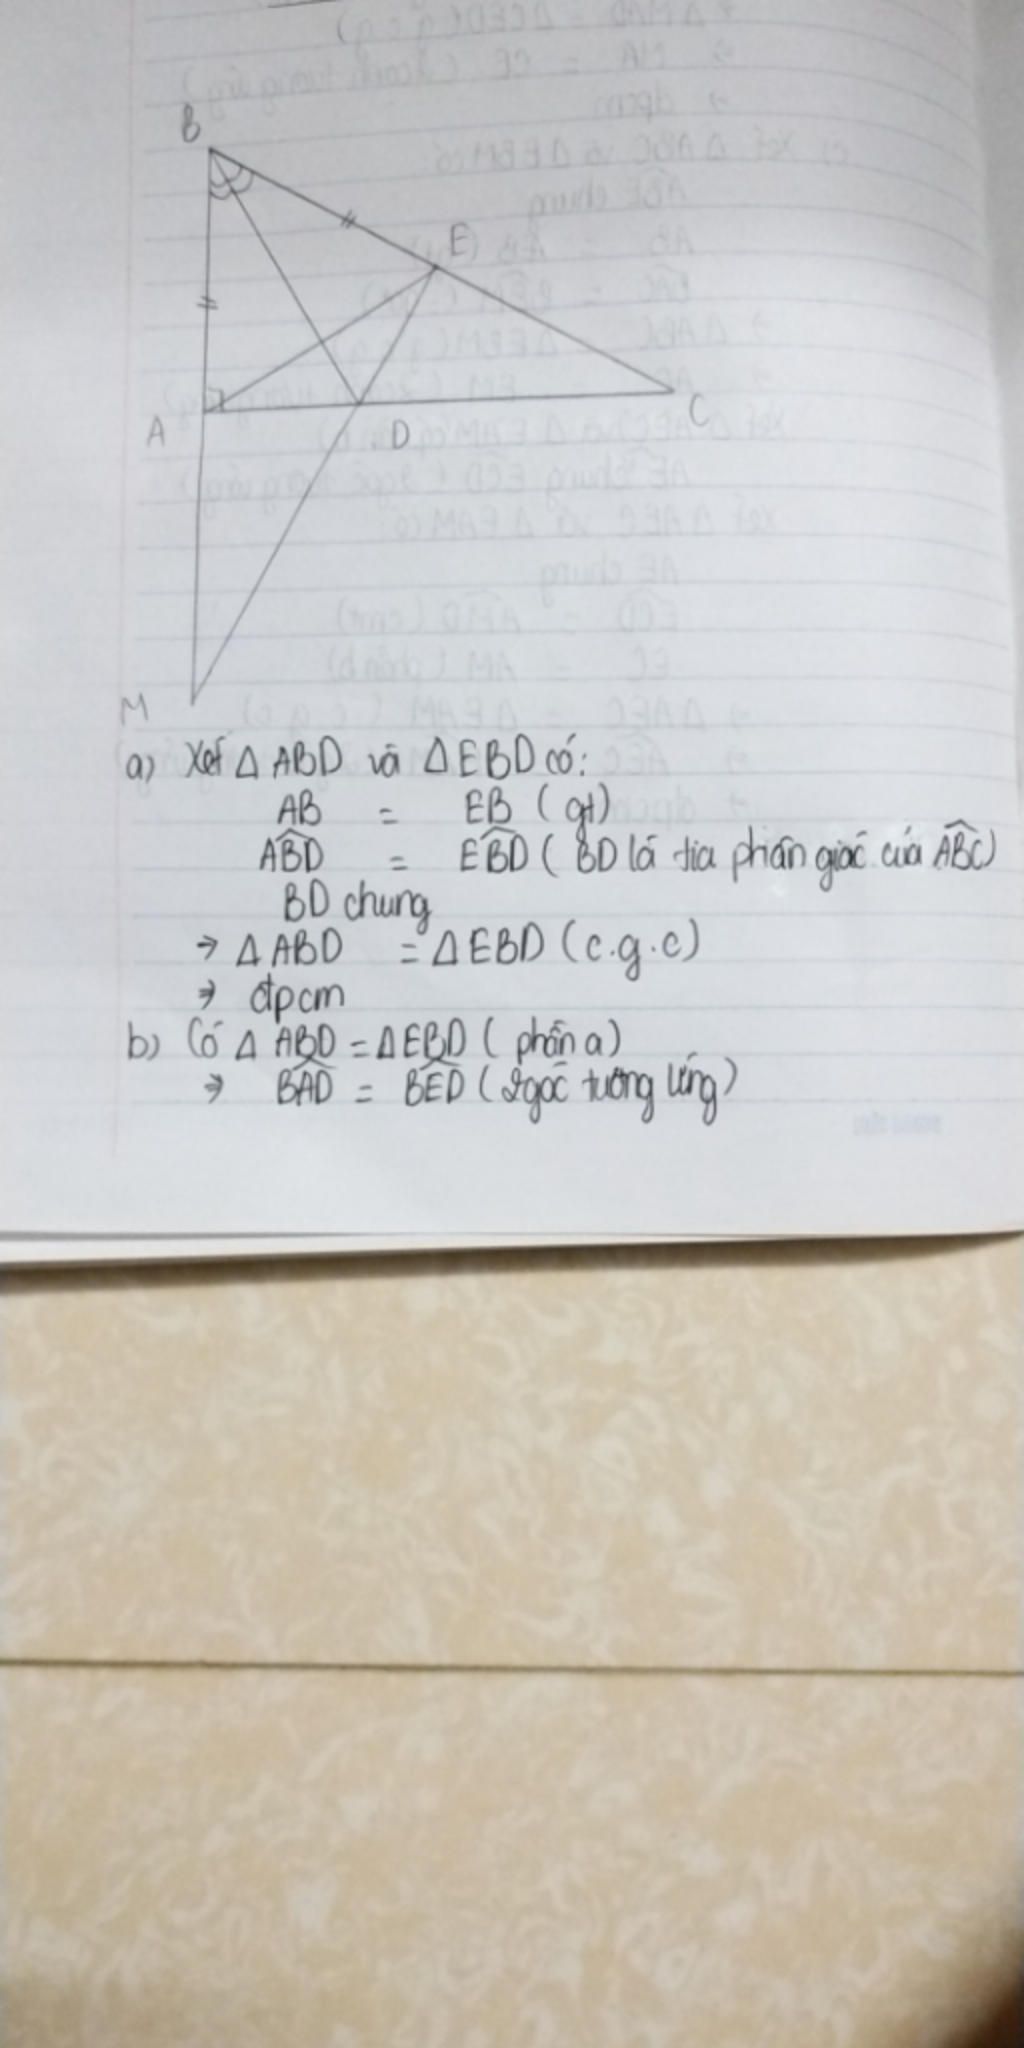 B
E
A
D
C
M
a) Xét Δ ABD và Δ EBD có:
AB = EB ( gt)
ABD = EBD ( BD là tia phân giác của ABC)
BD chung
→ Δ ABD = Δ EBD ( c.g.c)
→ đpcm
b) Có Δ ABD = Δ EBD ( phần a)
→ BAD = BED ( 2 góc tương ứng)